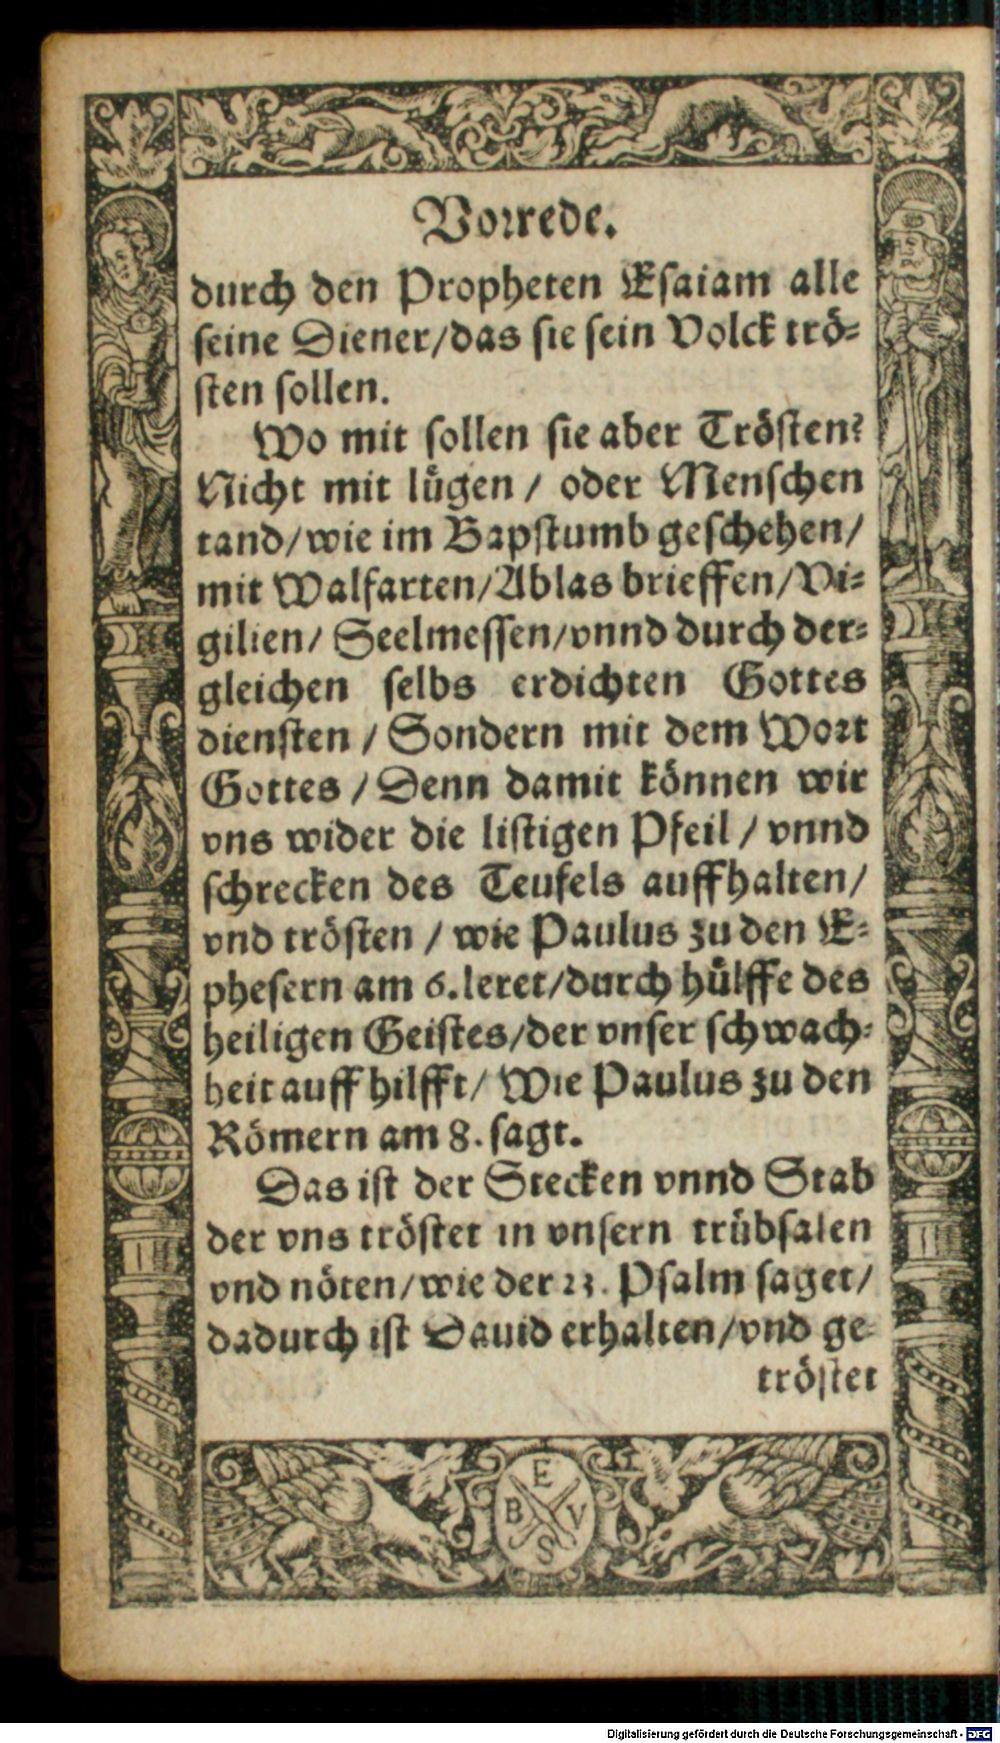 Vorrede.
durch den Propheten Esaiam alle
seine Diener/das sie sein Volck trö-
sten sollen.
Wo mit sollen sie aber Trösten?
Nicht mit lügen / oder Menschen
tand/wie im Bapstumb geschehen/
mit Walfarten/Ablas brieffen/Vi-
gilien/ Seelmessen/vnnd durch der-
gleichen selbs erdichten Gottes
diensten / Sondern mit dem Wort
Gottes / Denn damit können wir
vns wider die listigen Pfeil / vnnd
schrecken des Teufels auffhalten/
vnd trösten / wie Paulus zu den E-
phesern am 6. leret/durch hülffe des
heiligen Geistes/der vnser schwach-
heit auff hilfft/ Wie Paulus zu den
Römern am 8. sagt.
Das ist der Stecken vnnd Stab
der vns tröstet in vnsern trübsalen
vnd nöten/wie der 23. Psalm saget/
dadurch ist Dauid erhalten/vnd ge-
tröstet
E
B V
S
Digitalisierung gefördert durch die Deutsche Forschungsgemeinschaft - DFG